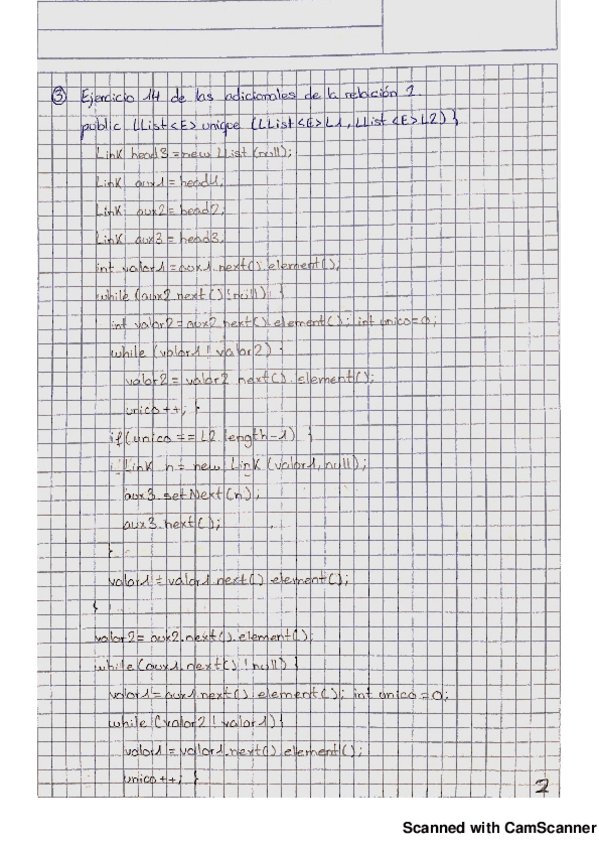 ③ Ejercicio 14 de las adicionales de la relación 2.
public LList<E> unique (LList<E> L1, LList<E> L2) {
Link head3 = new LList (null);
Link aux1 = head1;
Link aux2 = head2;
Link aux3 = head3;
int valor1 = aux1.next().element();
while (aux2.next() != null) {
int valor2 = aux2.next().element(); int unico=0;
while (valor1 ! valor2) {
valor2 = valor2.next().element();
unico++; }
if (unico == L2.length-1) {
Link n = new Link (valor1, null);
aux3.setNext(n);
aux3.next();
}
valor1 = valor1.next().element();
}
valor2 = aux2.next().element();
while (aux1.next() ! null) {
valor1 = aux1.next().element(); int unico=0;
while (valor2 ! valor1) {
valor1 = valor1.next().element();
unico++; }
2
Scanned with CamScanner